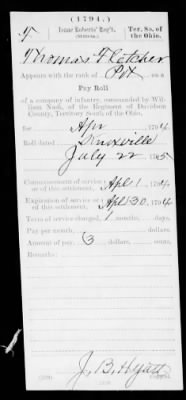 (1794.)
F | Isaac Roberts' Reg't, | Ter. So. of the Ohio.
Thomas Fletcher
Appears with the rank of Pvt on a
Pay Roll
of a company of infantry, commanded by William Nash, of the Regiment of Davidson County, Territory South of the Ohio,
for Apr 1794
Roll dated Knoxville
July 22 1795
Commencement of service or of this settlement, Apl 1, 1794
Expiration of service or of this settlement, Apl 30, 1794
Term of service charged, 1 months, days.
Pay per month, dollars.
Amount of pay, 3 dollars, cents.
Remarks:
J. B. Hyatt
Copyist.